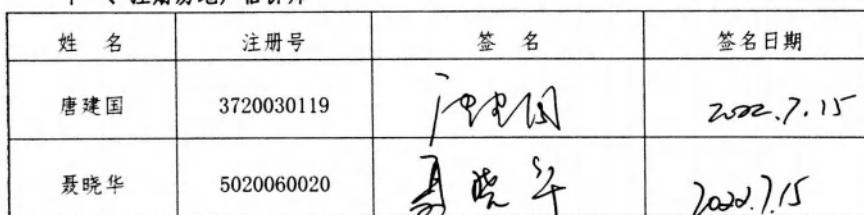 姓 名 注册号 签 名 签名日期
唐建国 3720030119 唐建国 2022.7.15
聂晓华 5020060020 聂晓华 2022.7.15